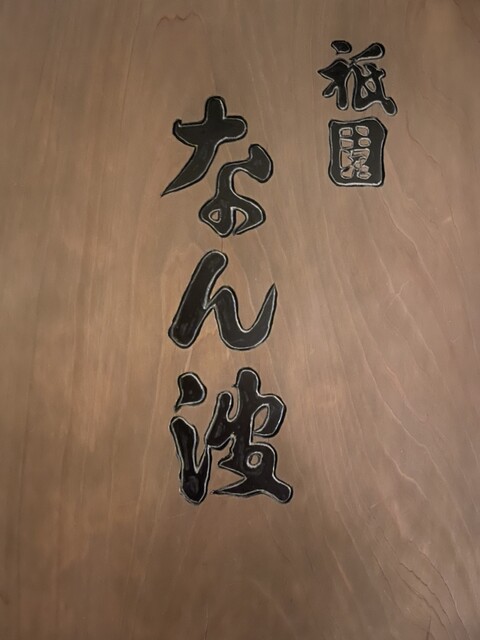 祇園
なん波